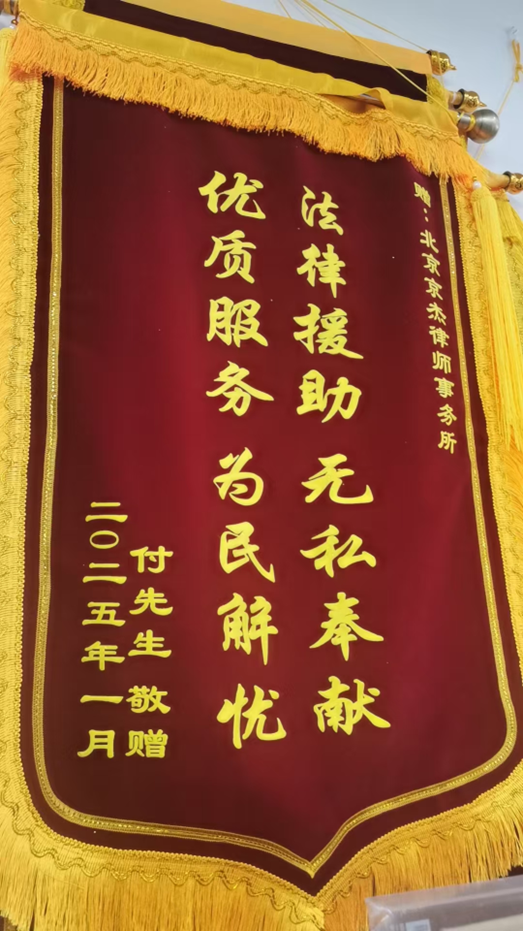 赠：北京京杰律师事务所
法律援助 无私奉献
优质服务 为民解忧
付先生 敬赠
二〇二五年一月